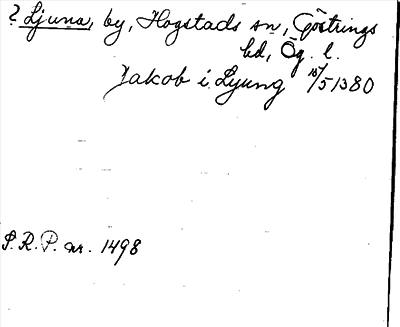 ? Ljuna, by, Hogstads sn, Göstrings
hd, Ög. l.
Jakob i Lyung 15/5 1380
S.R.P. nr. 1498